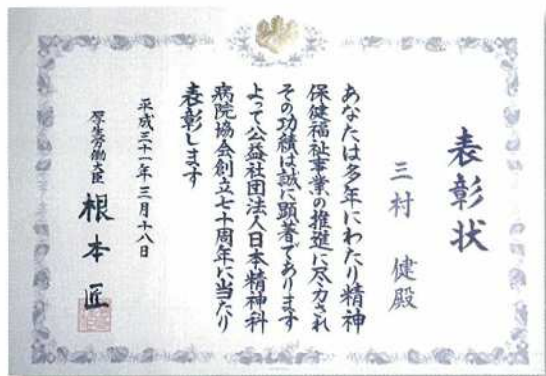 表彰状
三村 健殿
あなたは多年にわたり精神
保健福祉事業の推進に尽力され
その功績は誠に顕著であります
よって公益社団法人日本精神科
病院協会創立七十周年に当たり
表彰します
平成三十一年三月十八日
厚生労働大臣 根本 匠